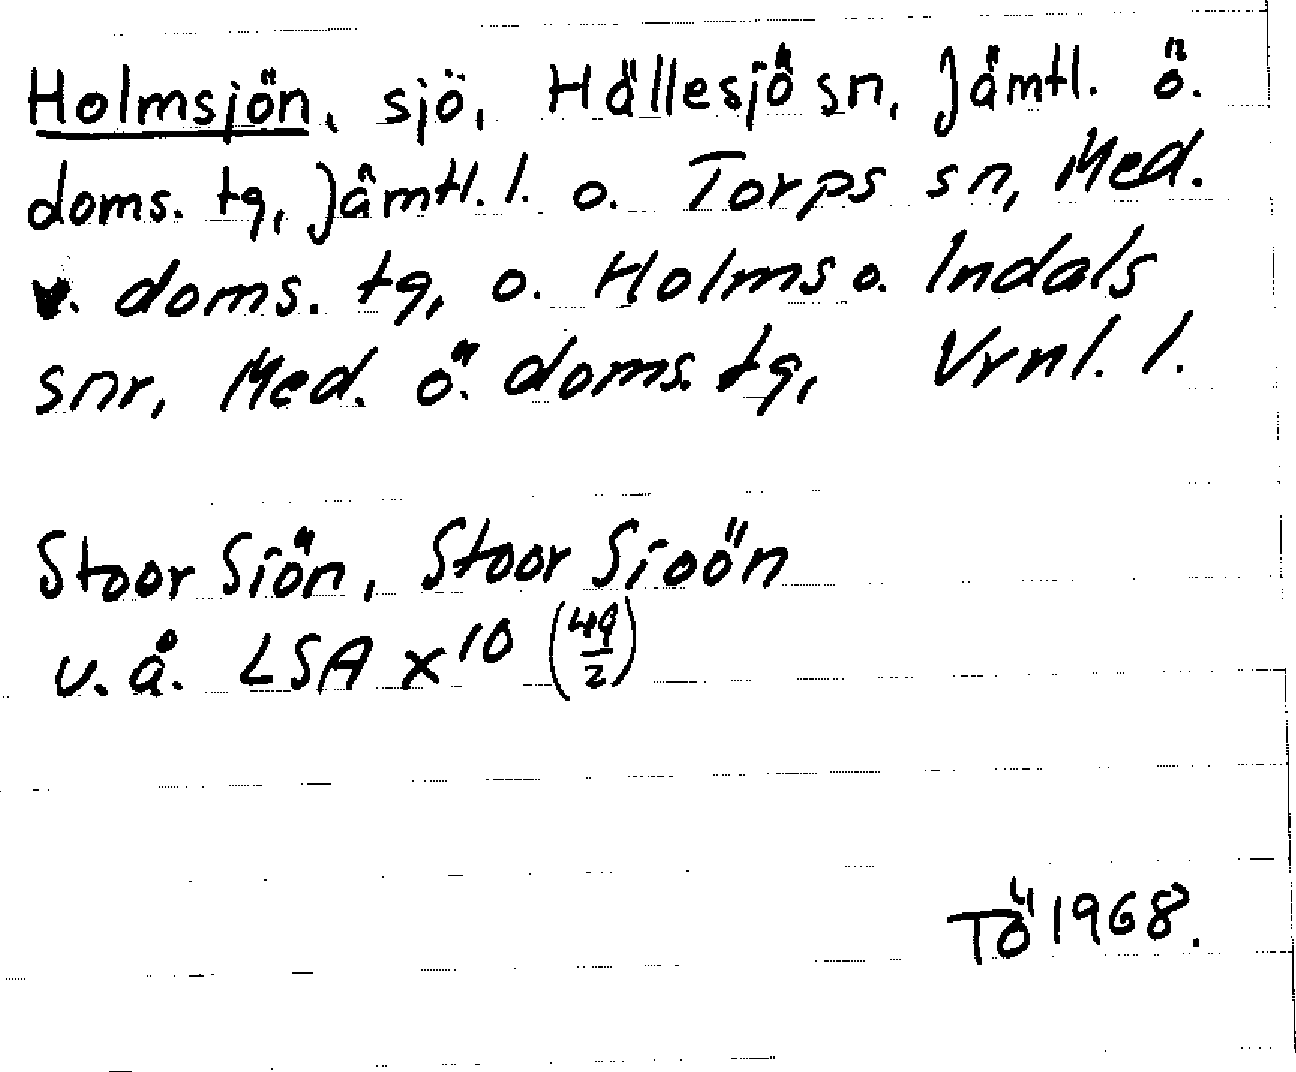 Holmsjön, sjö, Hällesjö sn, Jämtl. ö.
doms. tg, Jämtl. l. o. Torps sn, Med.
v. doms. tg, o. Holms o. Indals
snr, Med. ö. doms. tg, Vrnl. l.
Stoor Siön, Stoor Sioön
u. å. LSA x¹⁰ (49/2)
TÖ 1968.